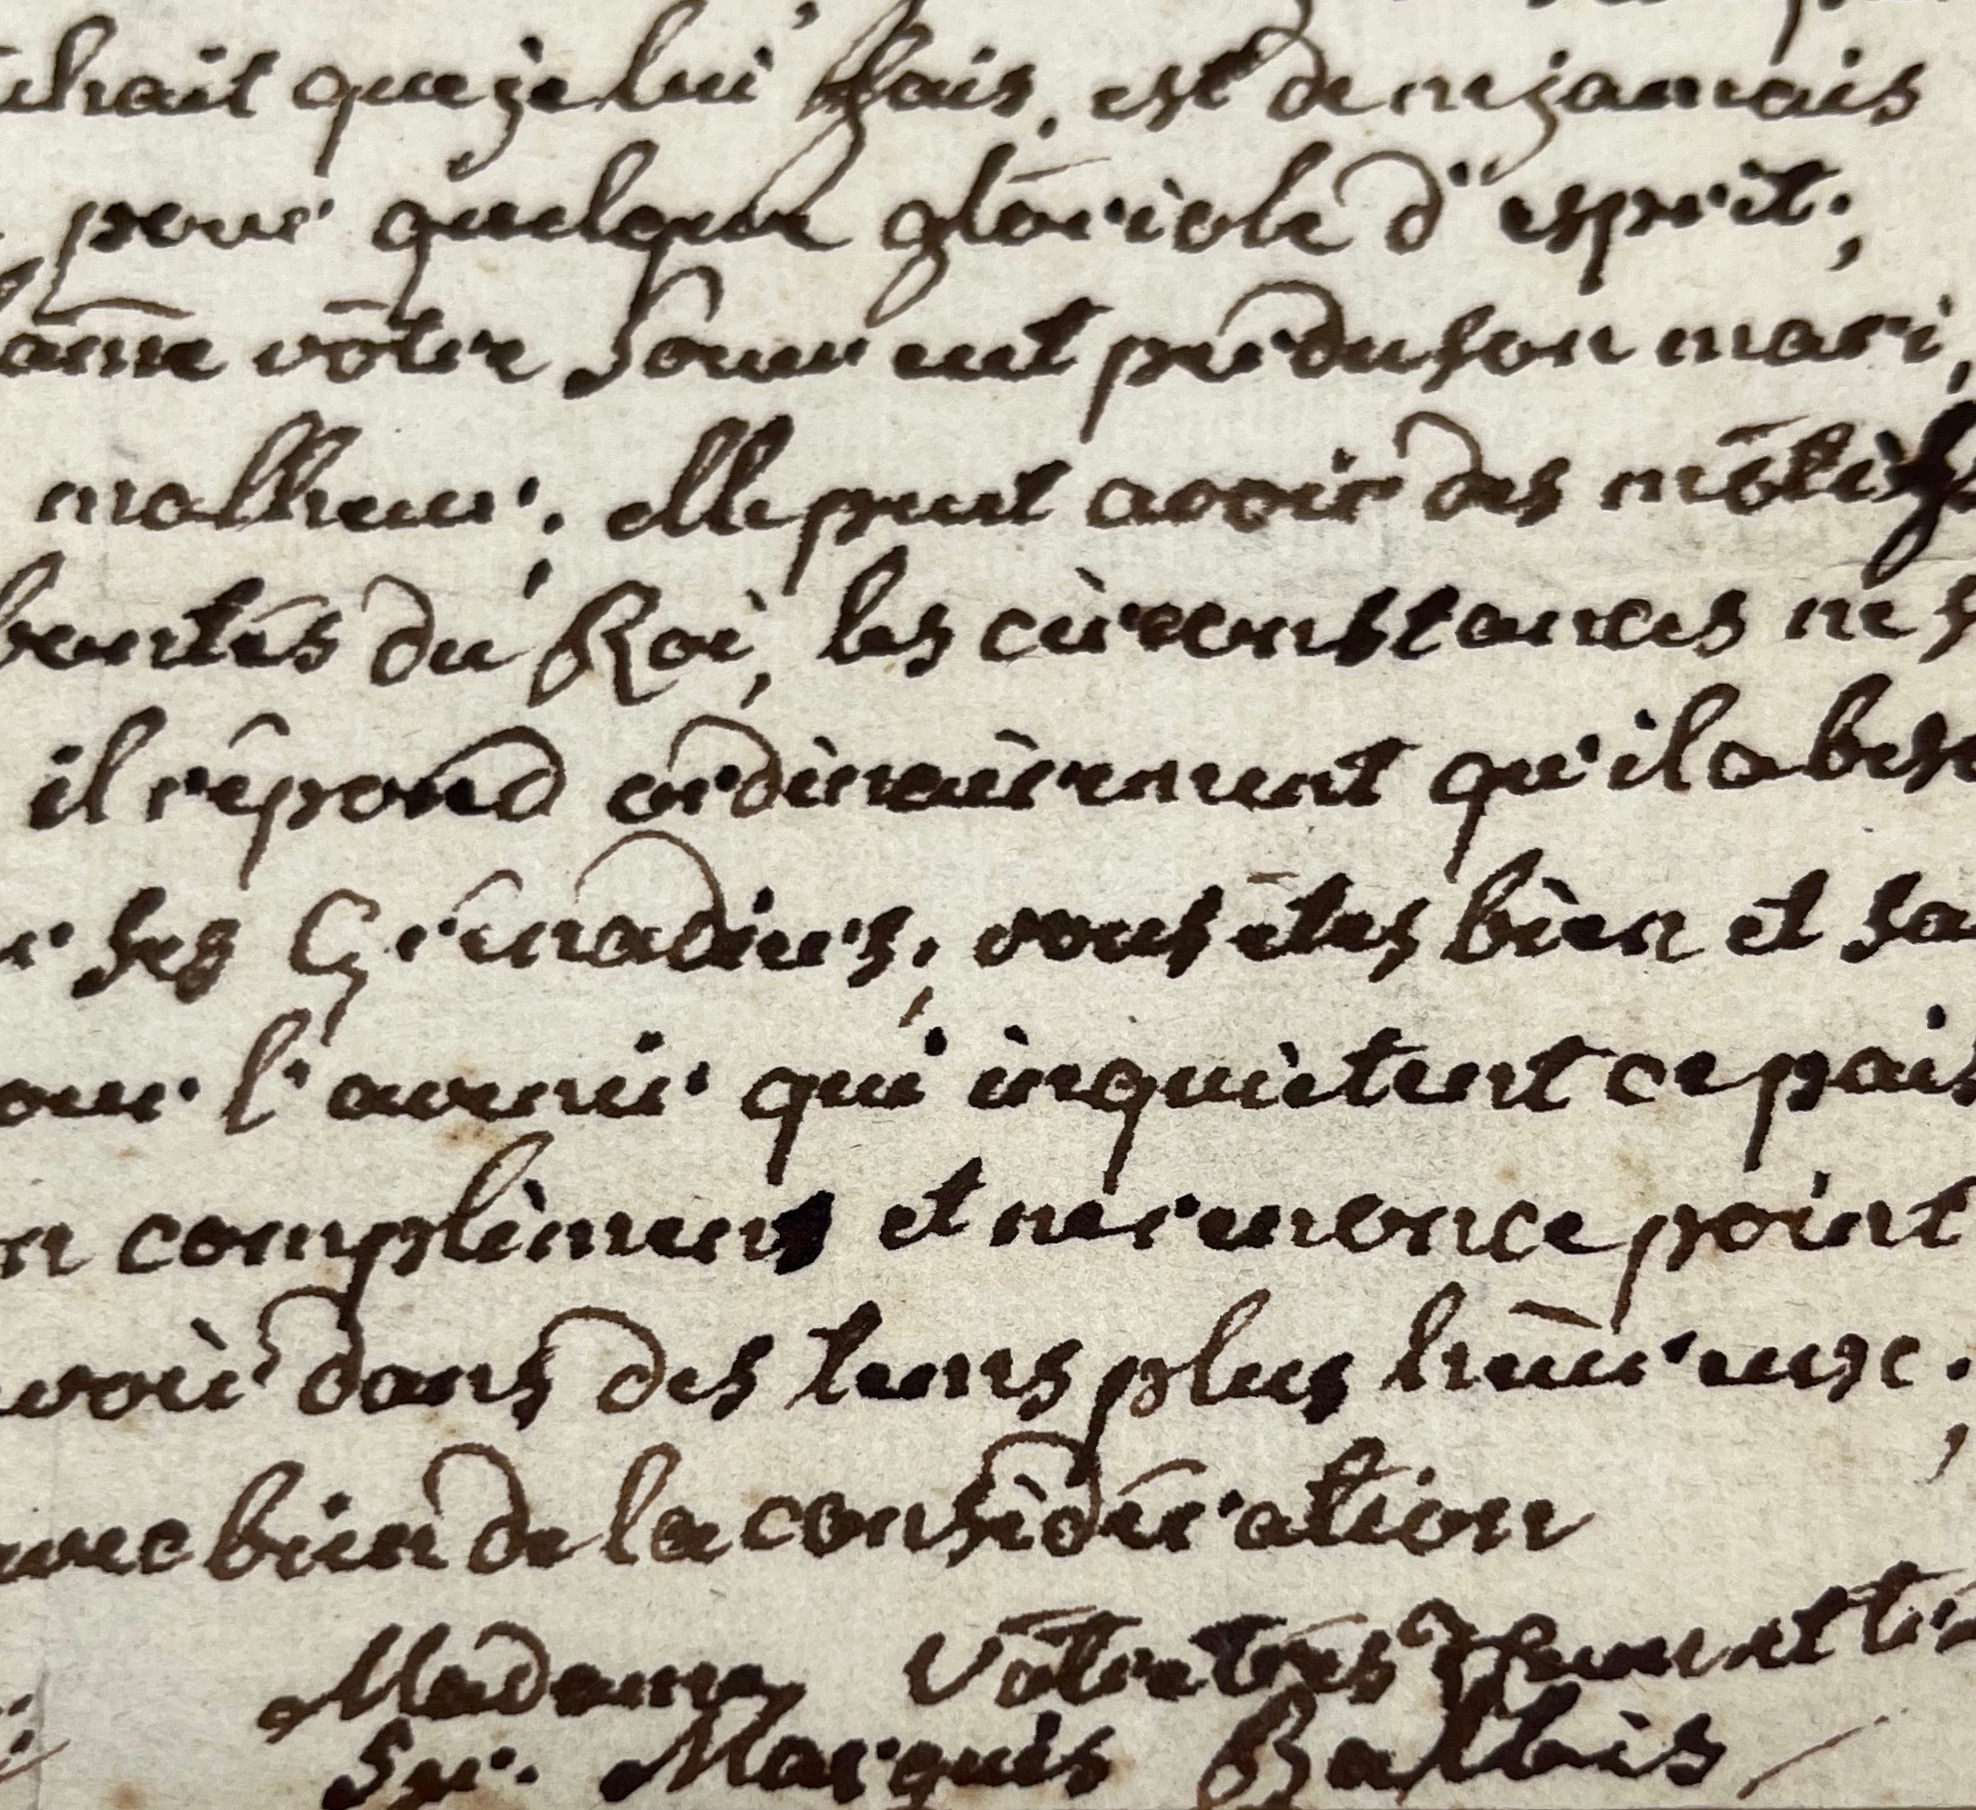 uhait que je lui fais, est de ne jamais
pour quelque gloriole d'esprit;
ame vôtre Soeur eut perdu son mari,
malheur; elle peut avoir des môtifs
bontés du Roi, les circonstances ne s
il répond ordinairement qu'il a beso
r ses Grénadiers; vous êtes bien et sa
our l'avenir qui inquiètent ce païs
n complimens et ne renonce point
voir dans des tems plus hûreuse;
avec bien de la considération
Madame Vôtre très et trè
Sr. Marquis Balbis